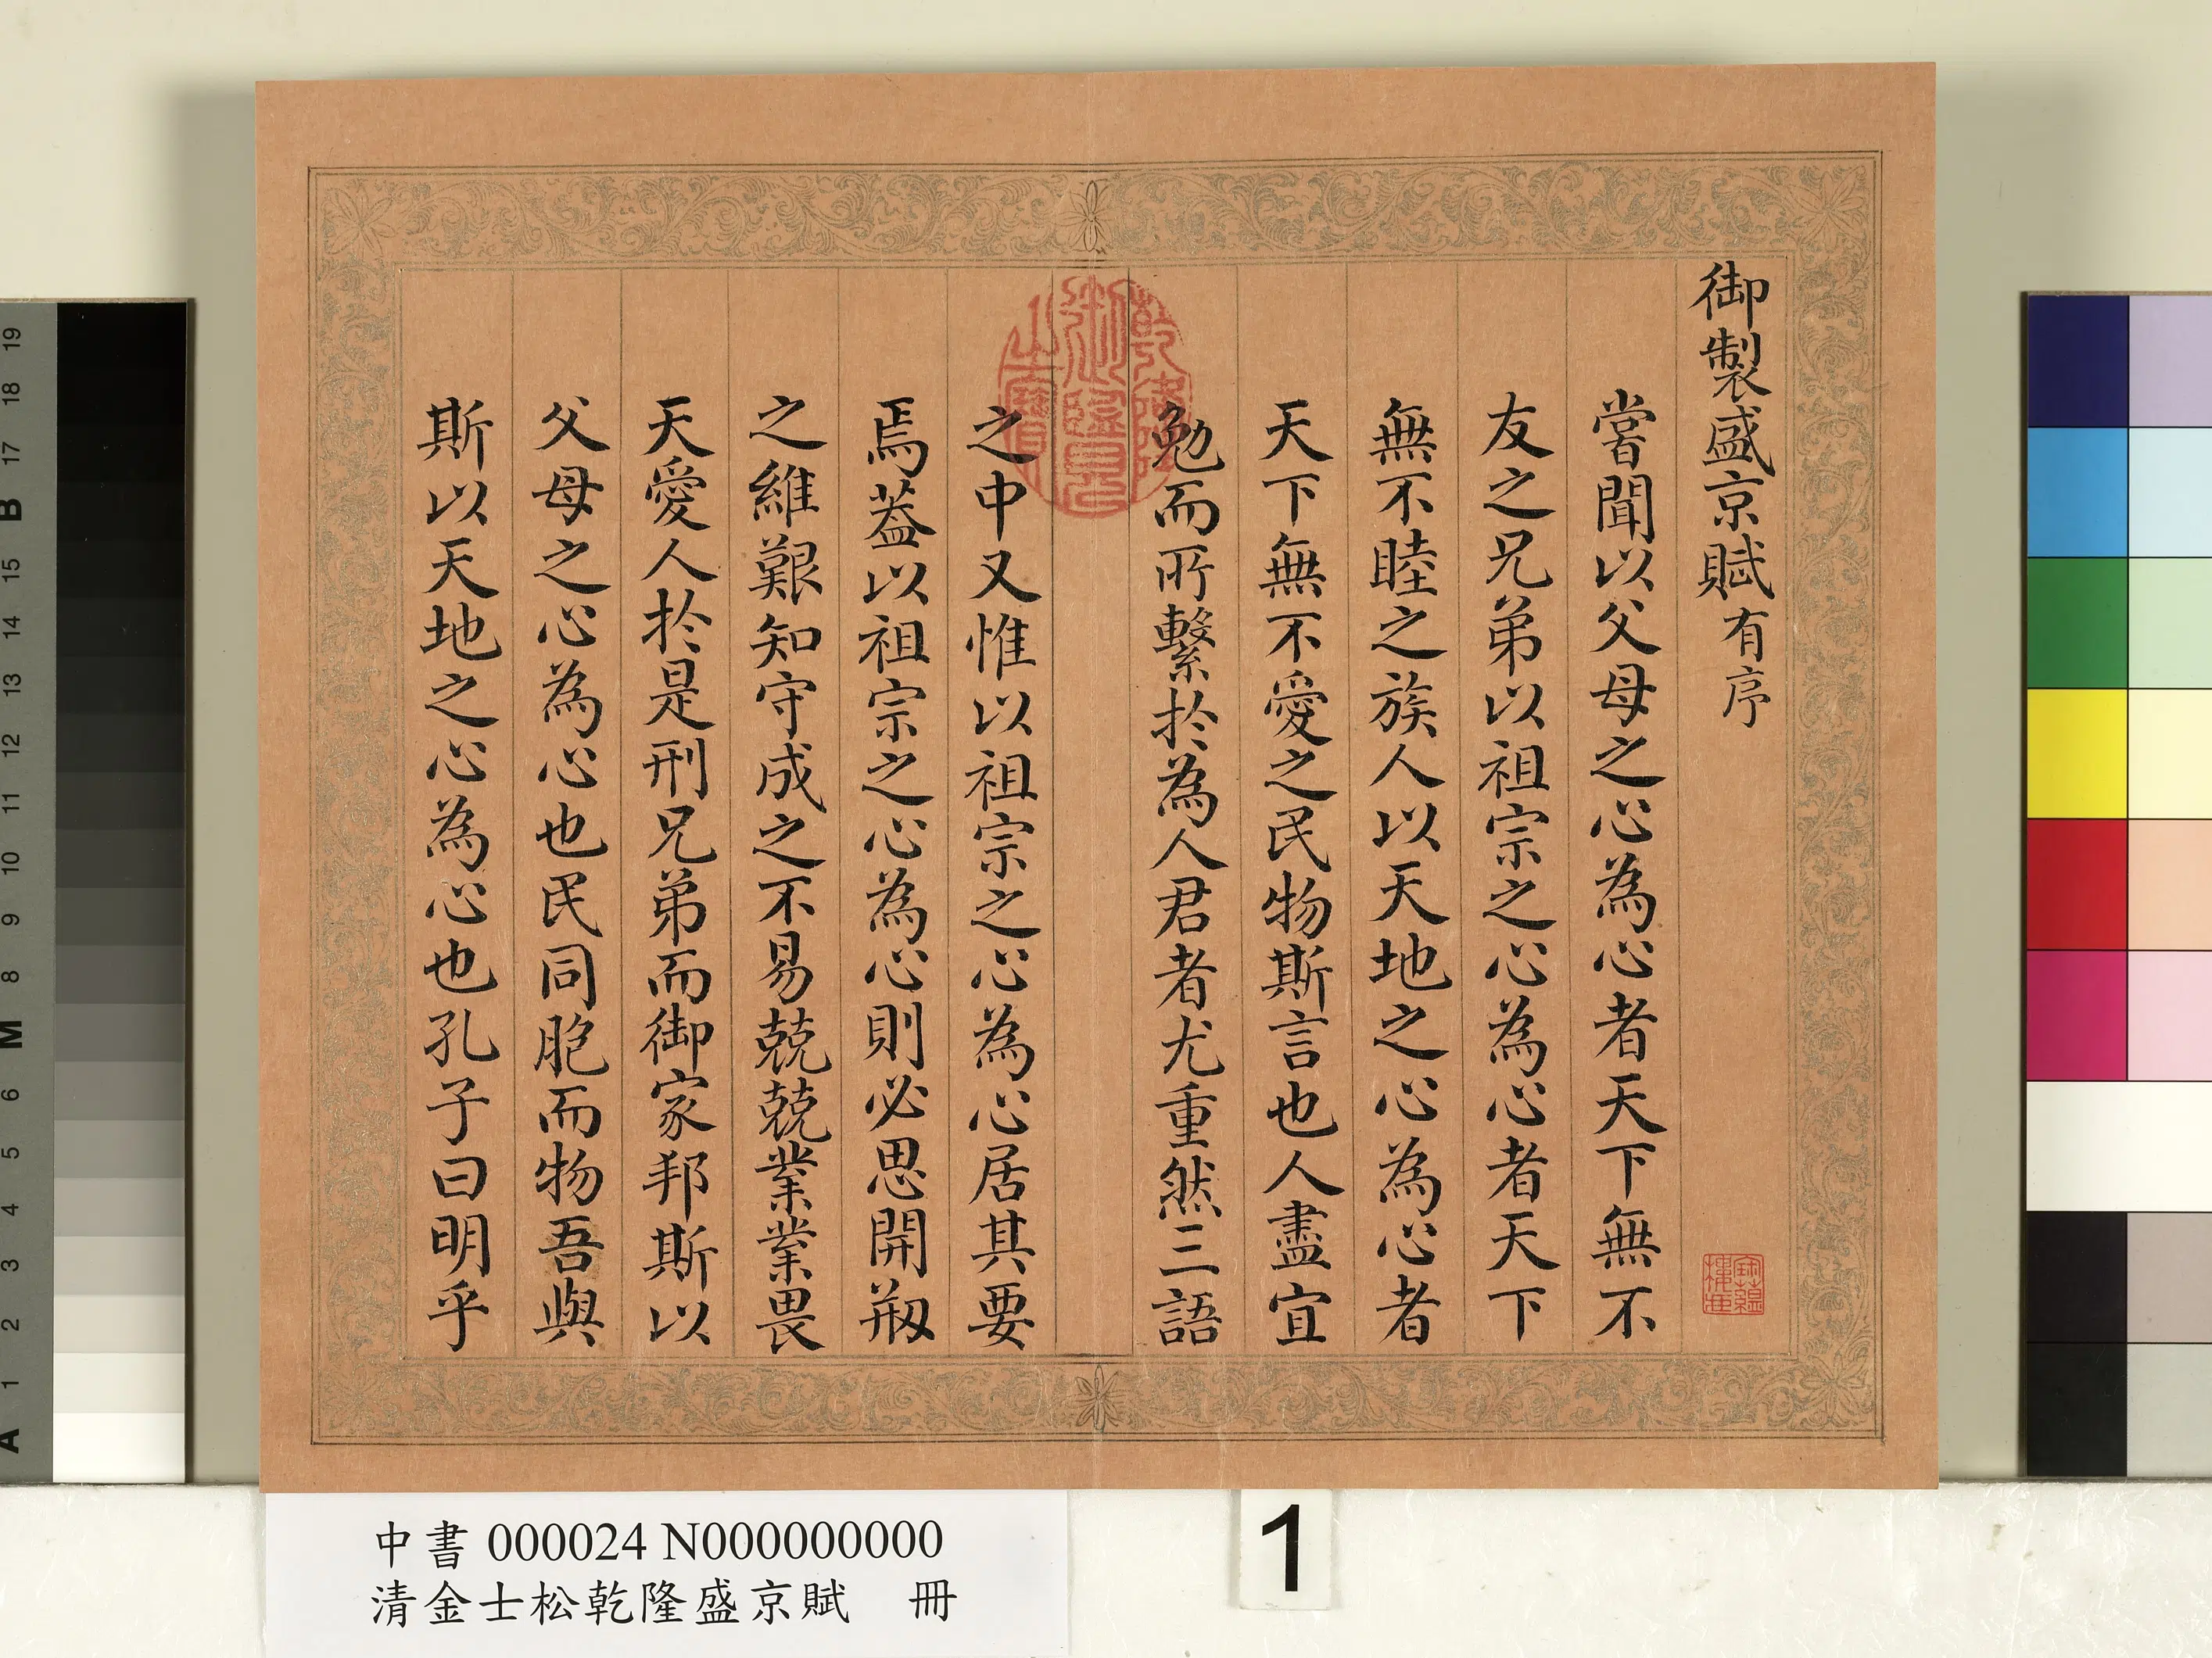 御製盛京賦有序
嘗聞以父母之心為心者天下無不
友之兄弟以祖宗之心為心者天下
無不睦之族人以天地之心為心者
天下無不愛之民物斯言也人盡宜
勉而所繫於為人君者尤重然三語
之中又惟以祖宗之心為心居其要
焉葢以祖宗之心為心則必思開剏
之維艱知守成之不易兢兢業業畏
天愛人於是刑兄弟而御家邦斯以
父母之心為心也民同胞而物吾與
斯以天地之心為心也孔子曰明乎
乾隆御覽之寶
寶蘊樓書畫
中書 000024 N000000000
清金士松乾隆盛京賦 冊
1
19
18
17
B
16
15
14
13
12
11
10
9
8
M
7
6
5
4
3
2
1
A